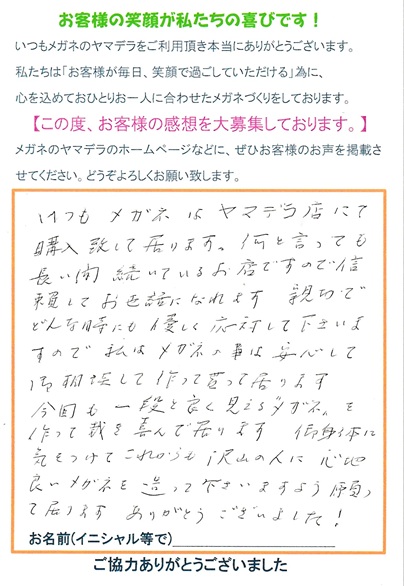 お客様の笑顔が私たちの喜びです！
いつもメガネのヤマデラをご利用頂き本当にありがとうございます。
私たちは「お客様が毎日、笑顔で過ごしていただける」為に、
心を込めておひとりお一人に合わせたメガネづくりをしております。
【この度、お客様の感想を大募集しております。】
メガネのヤマデラのホームページなどに、ぜひお客様のお声を掲載さ
せてください。どうぞよろしくお願い致します。
いつも メガネ は ヤマデラ店 にて
購入致して居ります。何と言っても
長い間 続いているお店ですので信
頼して お世話になれます 親切で
どんな時にも優しく応対して下さいま
すので 私は メガネの事は安心して
御相談して作って貰って居ります
今回も 一段と良く見える メガネ を
作って戴き喜んで居ります 御身体に
気をつけて これからも 沢山の人に 心地
良いメガネを 造って下さいますよう 願っ
て居ります ありがとう ございました！
お名前(イニシャル等で)
ご協力ありがとうございました